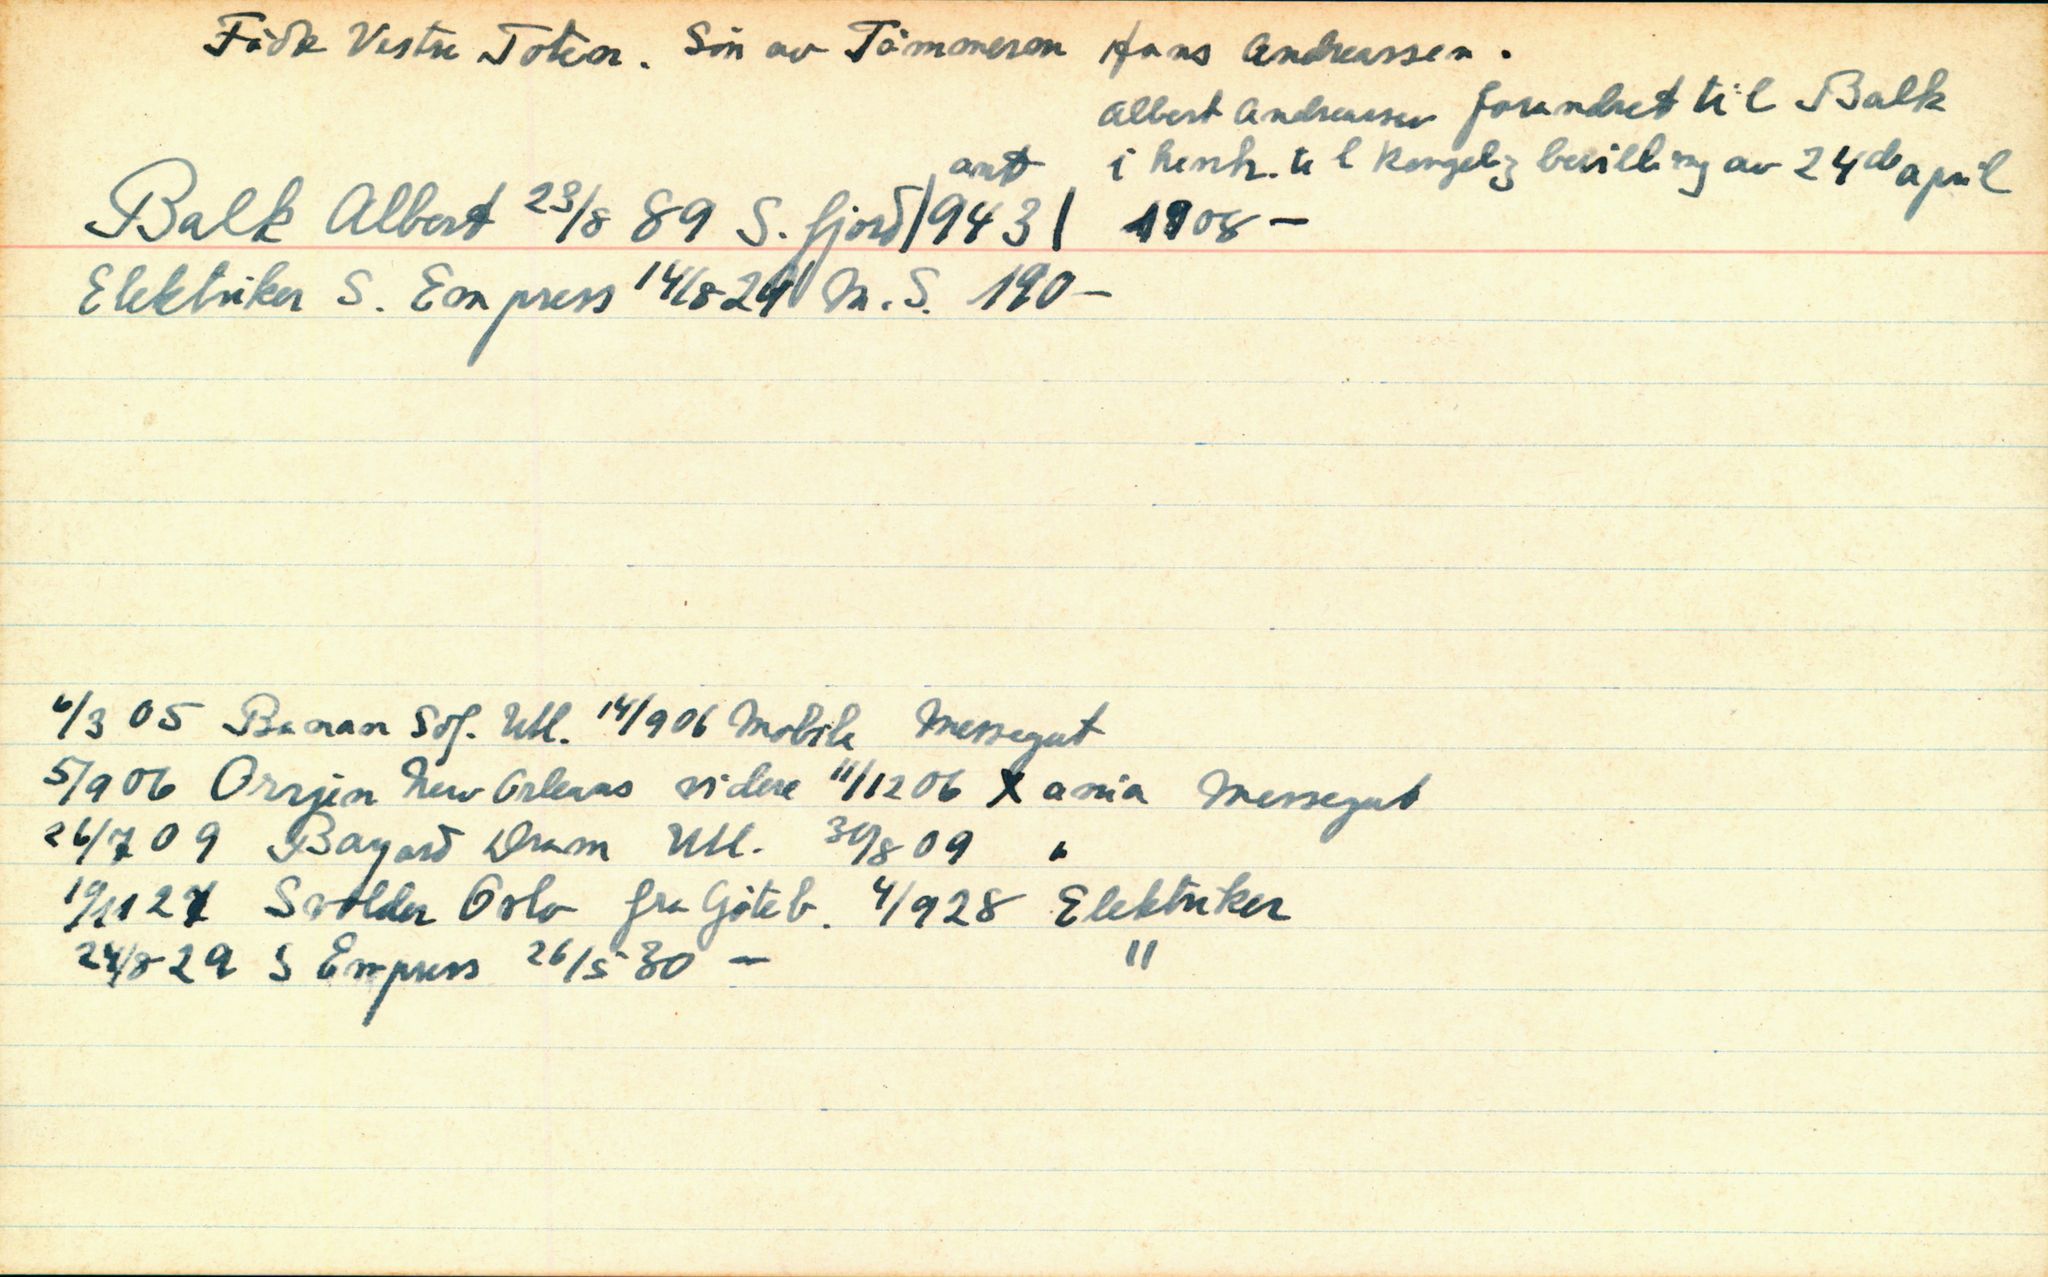 Född Vestre Toten. Sön av Tömmerm Hans Andreassen.
Albert Andreassen forandret til Balk
i henh. til Kongelig bevilling av 24de april
1908 —
ant
Balk Albert 23/8 89 S. fjord |943|
Elektriker S. Empress 14/8 29 M.S. 190 —
6/3 05 Banan Sdf. Utl. 14/9 06 Mobile Messegut
5/9 06 Orrjen New Orleans videre 11/12 06 X ania Messegut
26/7 09 Bayard Dram Utl. 30/8 09 "
19/11 27 Svolder Oslo fra Göteb. 4/9 28 Elektriker
24/8 29 S Empress 26/5 30 — "